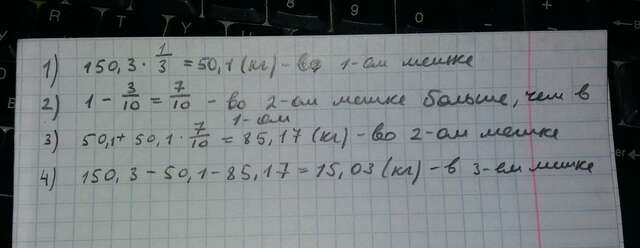 1) 150,3 · 1/3 = 50,1 (кг) - во 1-ом мешке
2) 1 - 3/10 = 7/10 - во 2-ом мешке больше, чем в
1-ом
3) 50,1 + 50,1 · 7/10 = 85,17 (кг) - во 2-ом мешке
4) 150,3 - 50,1 - 85,17 = 15,03 (кг) - в 3-ем мешке